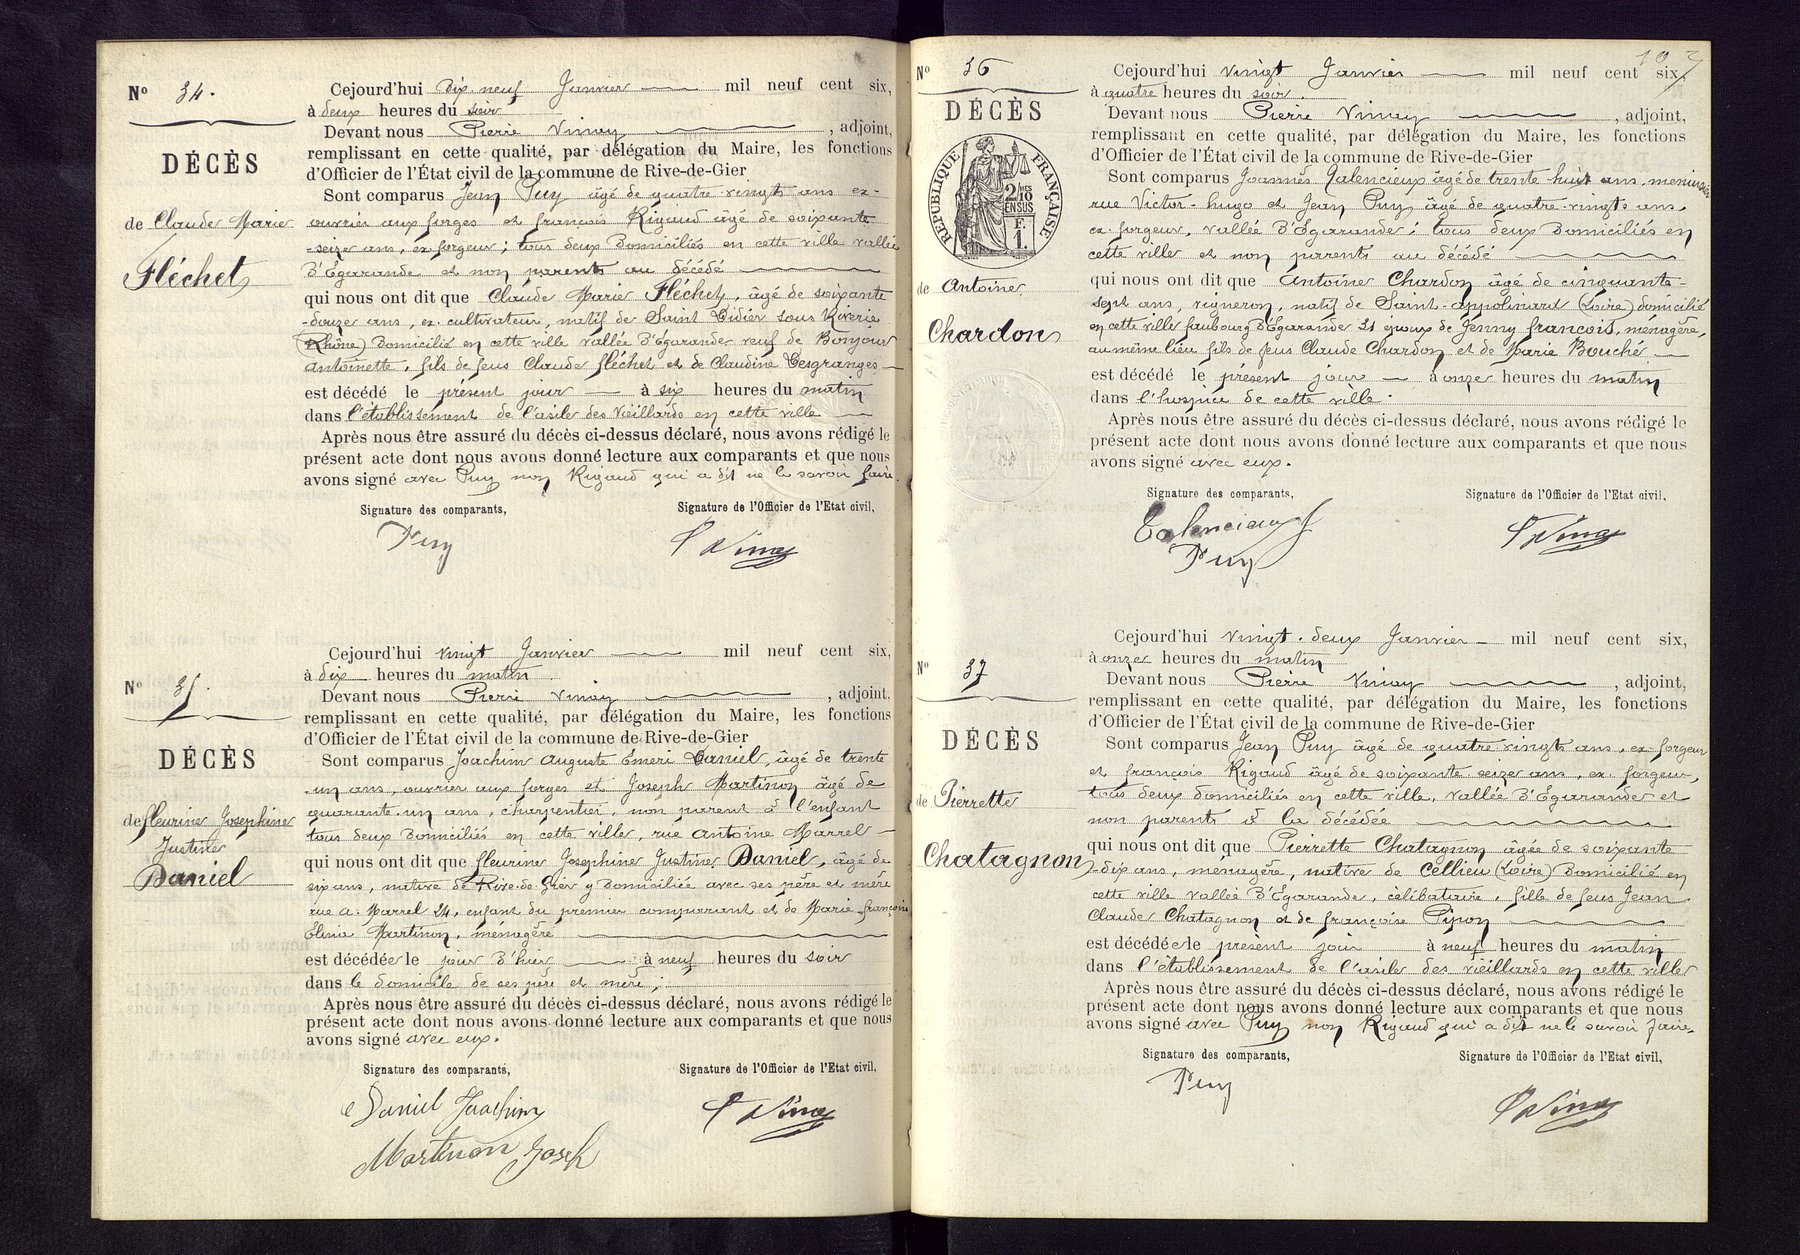 No 34.
DÉCÈS
de Claude Marie
Fléchet
Cejourd'hui dix-neuf Janvier mil neuf cent six,
à deux heures du soir
Devant nous Pierre Vinay, adjoint,
remplissant en cette qualité, par délégation du Maire, les fonctions
d'Officier de l'État civil de la commune de Rive-de-Gier
Sont comparus Jean Puy âgé de quatre-vingts ans ex-
ouvrier aux forges et françois Rigaud âgé de soixante
-seize ans, ex forgeur; tous deux Domiciliés en cette ville vallée
D'Egarande et non parents au décédé
qui nous ont dit que Claude Marie Fléchet, âgé de soixante
-douze ans, ex. cultivateur, natif de Saint Didier sous Riverie
(Rhône) Domicilié en cette ville vallée D'Egarande veuf de Bonjour
Antoinette, fils de feus Claude fléchet et de Claudine Desgranges
est décédé le présent jour à six heures du matin
dans l'établissement de l'asile des Vieillards en cette ville
Après nous être assuré du décès ci-dessus déclaré, nous avons rédigé le
présent acte dont nous avons donné lecture aux comparants et que nous
avons signé avec Puy non Rigaud qui a dit ne le savoir faire.
Signature des comparants,
Signature de l'Officier de l'Etat civil,
Puy
P Vinay
No 35.
DÉCÈS
de fleurine Josephine
Justine
Daniel
Cejourd'hui vingt Janvier mil neuf cent six,
à dix heures du matin.
Devant nous Pierre Vinay, adjoint,
remplissant en cette qualité, par délégation du Maire, les fonctions
d'Officier de l'État civil de la commune de Rive-de-Gier
Sont comparus Joachim Auguste Emeri Daniel, âgé de trente
-un ans, ouvrier aux forges et Joseph Martinon âgé de
quarante-un ans, charpentier, non parent à l'enfant
tous deux Domiciliés en cette ville, rue Antoine Marrel
qui nous ont dit que fleurine Josephine Justine Daniel, âgé de
six ans, native de Rive-de-Gier y Domiciliée avec ses père et mère
rue A. Marrel 24, enfant du premier comparant et de Marie françoise
Martinon, ménagère
est décédée le jour D'hier à neuf heures du soir
dans le domicile de ses père et mère;
Après nous être assuré du décès ci-dessus déclaré, nous avons rédigé le
présent acte dont nous avons donné lecture aux comparants et que nous
avons signé avec eux.
Signature des comparants,
Signature de l'Officier de l'Etat civil,
Daniel Joachim
P Vinay
Martinon Joseph
No 36
DÉCÈS
RÉPUBLIQUE FRANÇAISE
2/10
EN SUS
F
1.
de Antoine
Chardon
Cejourd'hui vingt Janvier mil neuf cent six,
à quatre heures du soir.
Devant nous Pierre Vinay, adjoint,
remplissant en cette qualité, par délégation du Maire, les fonctions
d'Officier de l'État civil de la commune de Rive-de-Gier
Sont comparus Joannès Talencieux âgé de trente huit ans, menuisier
rue Victor-hugo et Jean Puy âgé de quatre-vingts ans,
ex. forgeur, vallée D'Egarande; tous deux Domiciliés en
cette ville et non parents au décédé
qui nous ont dit que Antoine Chardon âgé de cinquante-
sept ans, vigneron, natif de Saint-appolinard (Loire) domicilié
en cette ville faubourg d'Egarande 21 époux de Jenny françois, ménagère,
au même lieu fils de feus Claude Chardon et de Marie Bouché
est décédé le présent jour à onze heures du matin
dans l'hospice de cette ville.
Après nous être assuré du décès ci-dessus déclaré, nous avons rédigé le
présent acte dont nous avons donné lecture aux comparants et que nous
avons signé avec eux.
Signature des comparants,
Signature de l'Officier de l'Etat civil,
Talencieux
P Vinay
Puy
No 37
DÉCÈS
de Pierrette
Chatagnon
Cejourd'hui vingt-deux Janvier mil neuf cent six,
à onze heures du matin
Devant nous Pierre Vinay, adjoint,
remplissant en cette qualité, par délégation du Maire, les fonctions
d'Officier de l'État civil de la commune de Rive-de-Gier
Sont comparus Jean Puy âgé de quatre-vingts ans, ex-forgeur
et françois Rigaud âgé de soixante seize ans, ex. forgeur,
tous deux domiciliés en cette ville, vallée D'Egarande et
non parents à la décédée
qui nous ont dit que Pierrette Chatagnon âgée de soixante
-dix ans, ménagère, native de Cellieu (Loire) Domicilié en
cette ville vallée D'Egarande, célibataire, fille de feus Jean
Claude Chatagnon et de françoise Pipon
est décédée le présent jour à neuf heures du matin
dans l'établissement de l'asile des vieillards en cette ville
Après nous être assuré du décès ci-dessus déclaré, nous avons rédigé le
présent acte dont nous avons donné lecture aux comparants et que nous
avons signé avec Puy non Rigaud qui a dit ne le savoir faire.
Signature des comparants,
Signature de l'Officier de l'Etat civil,
Puy
P Vinay